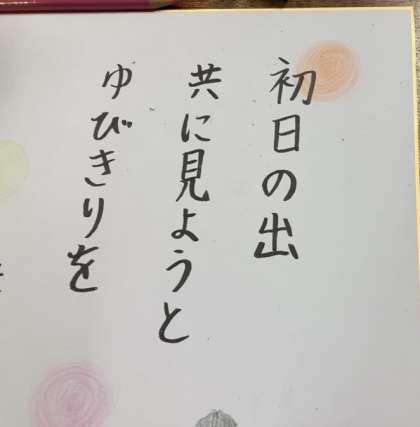 初日の出
共に見ようと
ゆびきりを